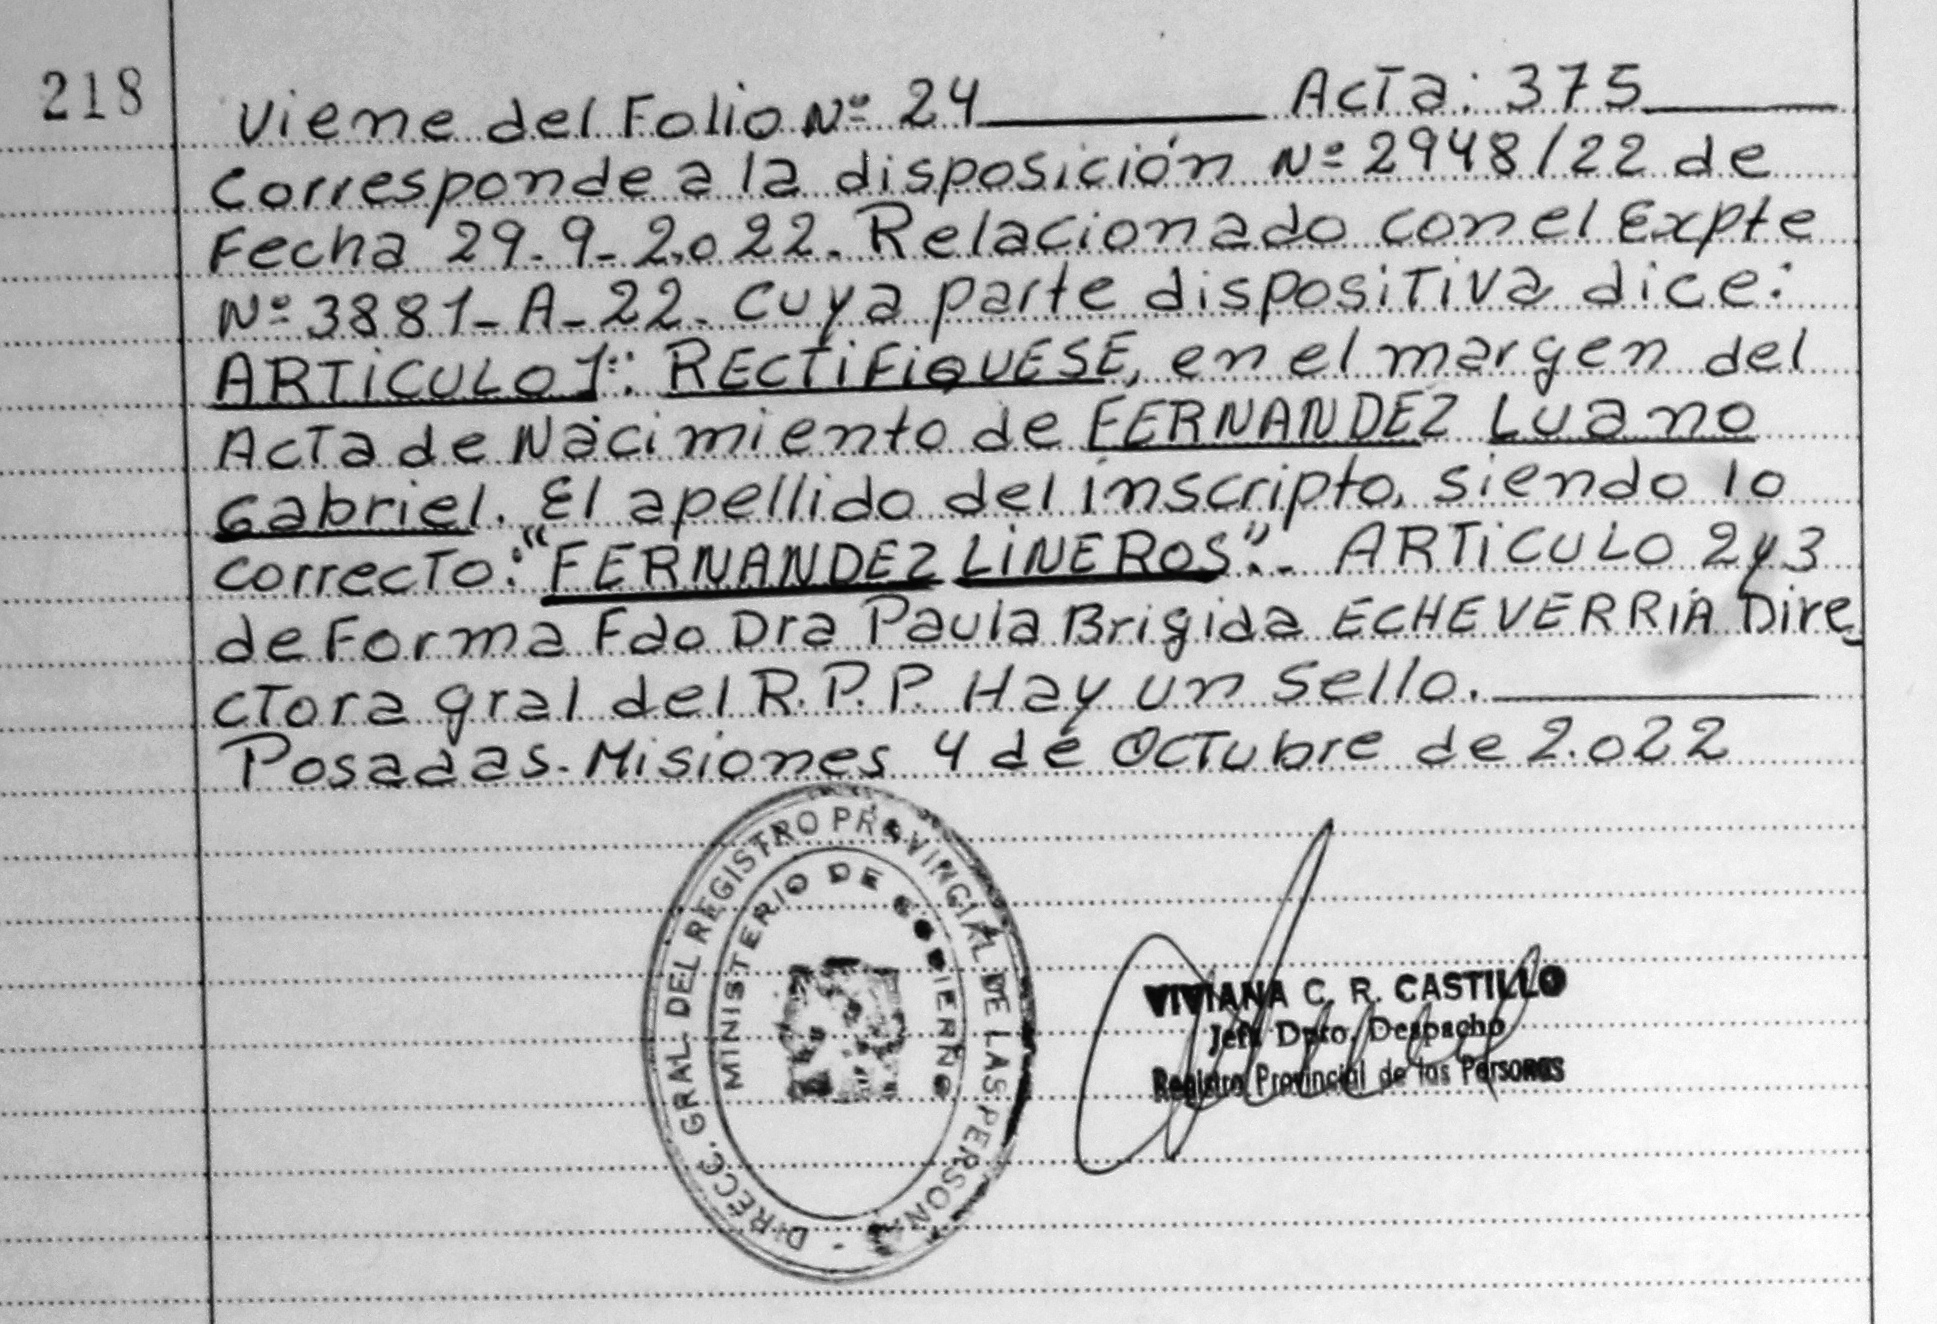 218
Viene del Folio Nº 24 ______ Acta: 375 ______
Corresponde a la disposición Nº 2948/22 de
Fecha 29-9-2.022. Relacionado con el Expte
Nº 3881-A-22. cuya parte dispositiva dice:
ARTICULO 1º: RECTIFIQUESE, en el margen del
Acta de Nacimiento de FERNANDEZ Luano
Gabriel. El apellido del inscripto, siendo lo
correcto: "FERNANDEZ LINEROS".- ARTICULO 2 y 3
de Forma Fdo Dra Paula Brigida ECHEVERRIA Dire
ctora gral del R.P.P. Hay un sello. ______
Posadas-Misiones 4 de Octubre de 2.022
DIRECC. GRAL. DEL REGISTRO PROVINCIAL DE LAS PERSONAS
MINISTERIO DE GOBIERNO
VIVIANA C. R. CASTILLO
Jefe Dpto. Despacho
Registro Provincial de las Personas